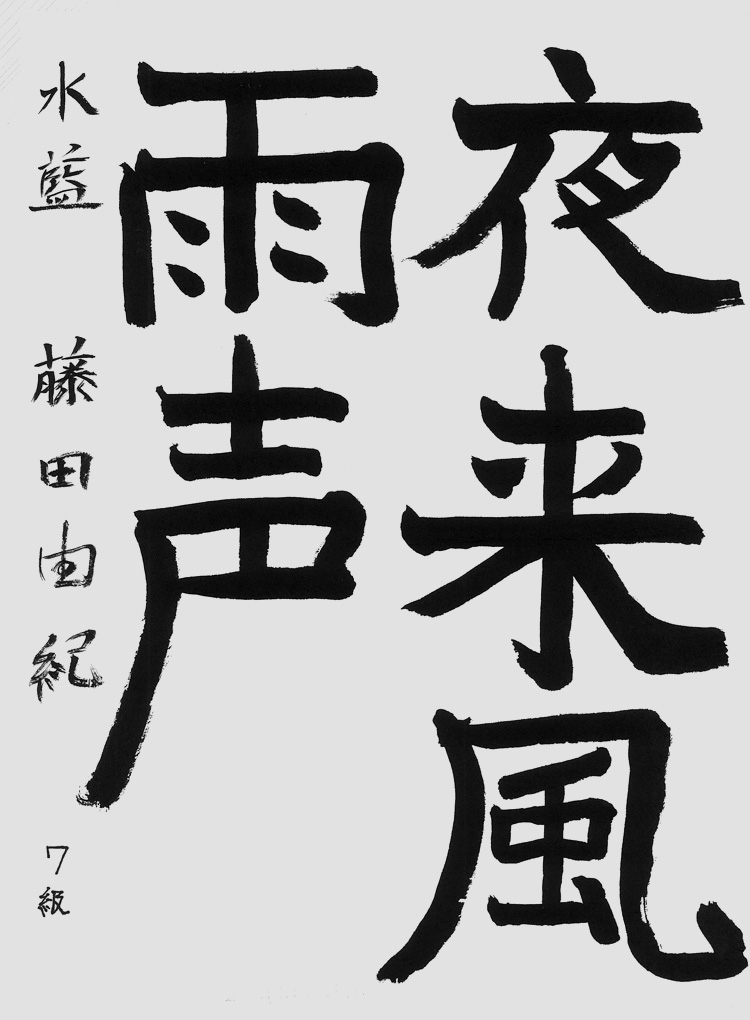 夜来風
雨声
水藍 藤田由紀 7級